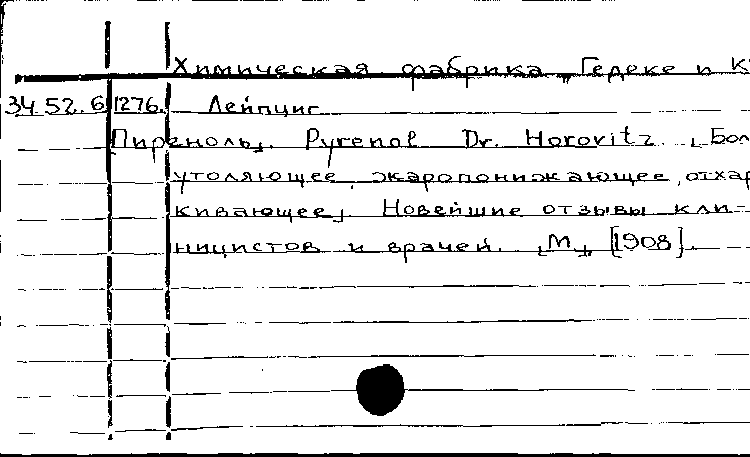 Химическая фабрика „Гедеке и К
34.52.6 1276. Лейпциг
Пиреноль„. Pyrenol Dr. Horovitz. „Бол
утоляющее, жаропонижающее, отхар
кивающее„. Новейшие отзывы кли-
ницистов и врачей. „М„ [1908].